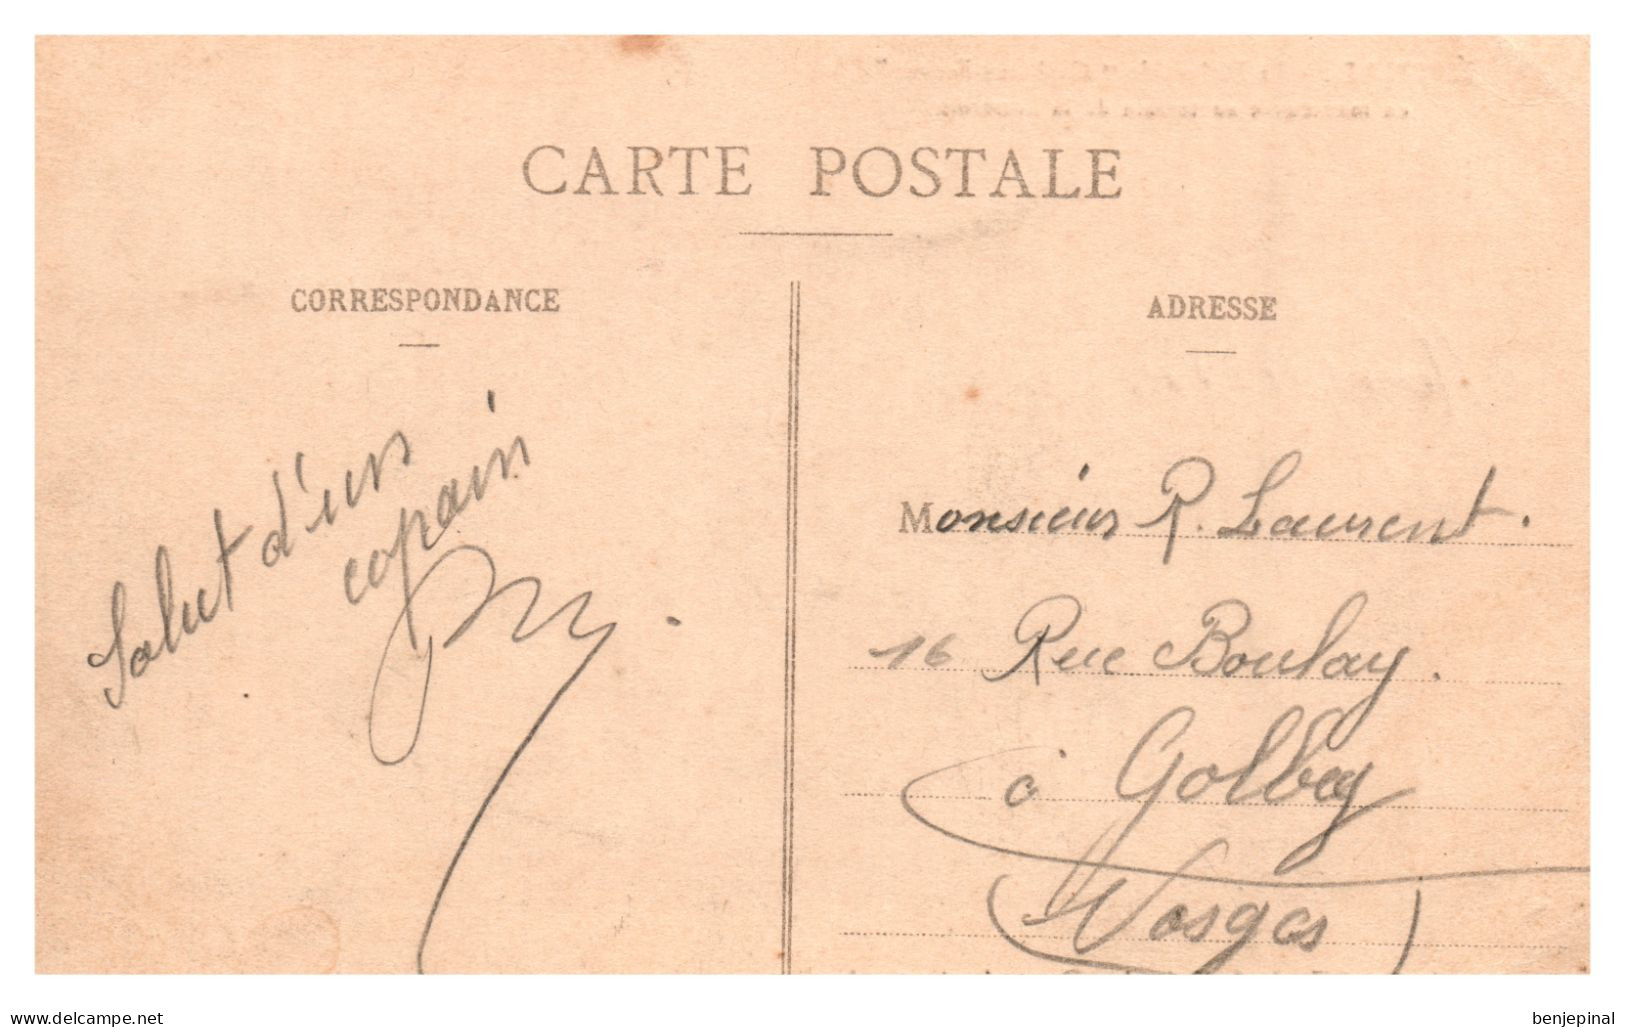 CARTE POSTALE
CORRESPONDANCE
Salut d'un
copain
ADRESSE
Monsieur R. Laurent.
16 Rue Boulay.
à Golbey
(Vosges)
www.delcampe.net
benjepinal